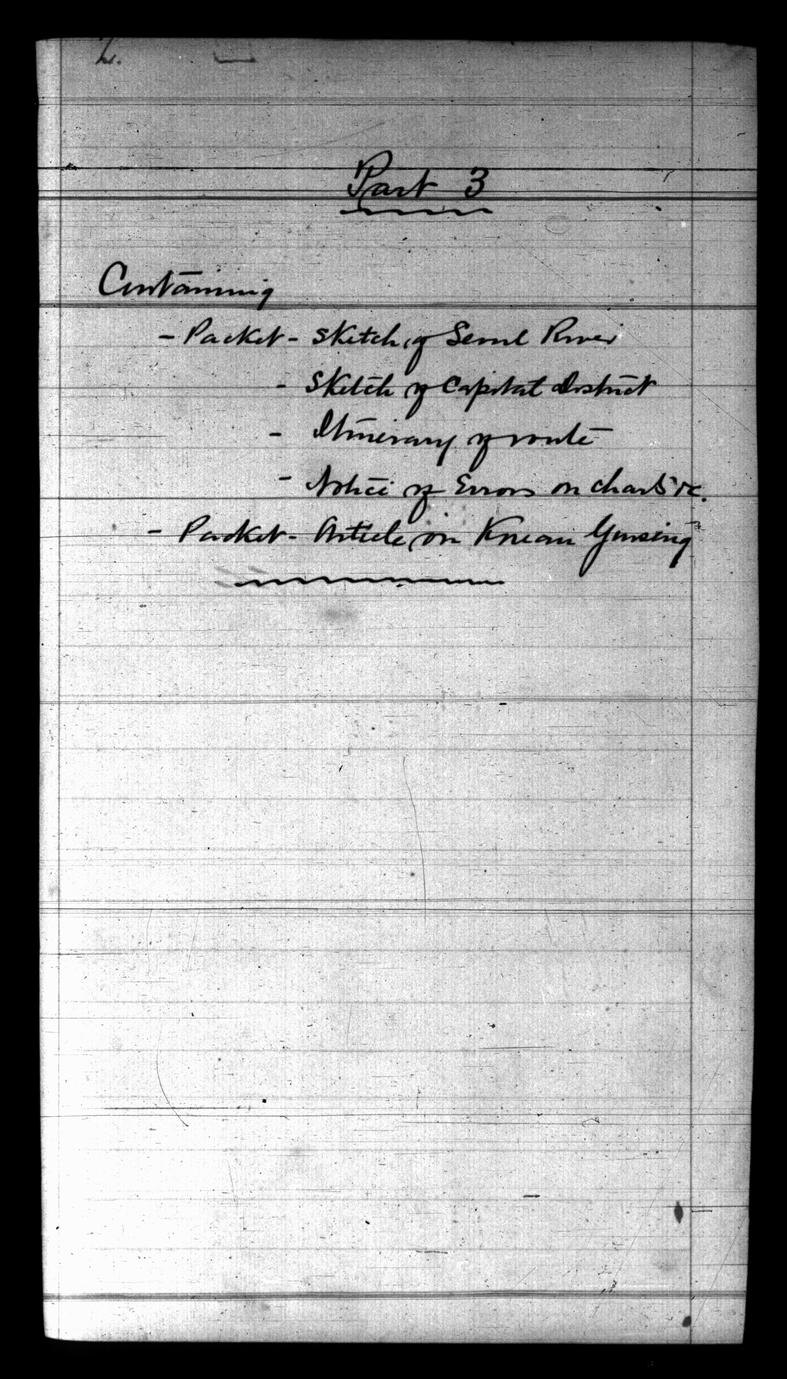 2.
Part 3
Containing
- Packet - Sketch of Seoul River
- Sketch of Capital District
- Itinerary of route
- Notice of Errors on charts &c.
- Packet - Article on Korean Ginseng